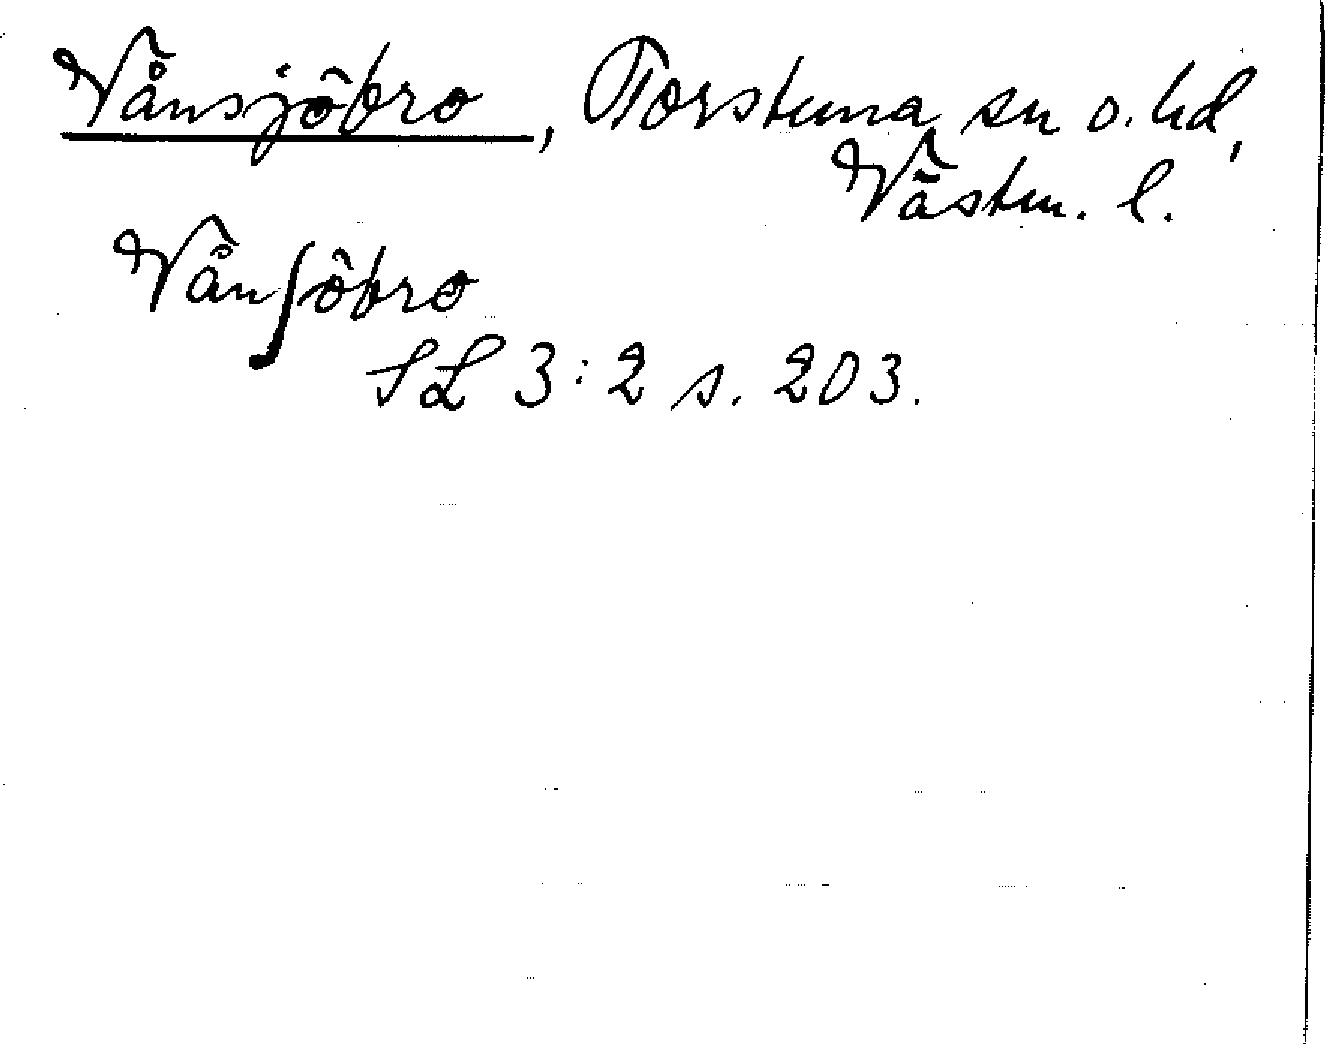 Vånsjöbro, Torstuna sn o. hd,
Västm. l.
Vånʃöbro
SL 3:2 s. 203.